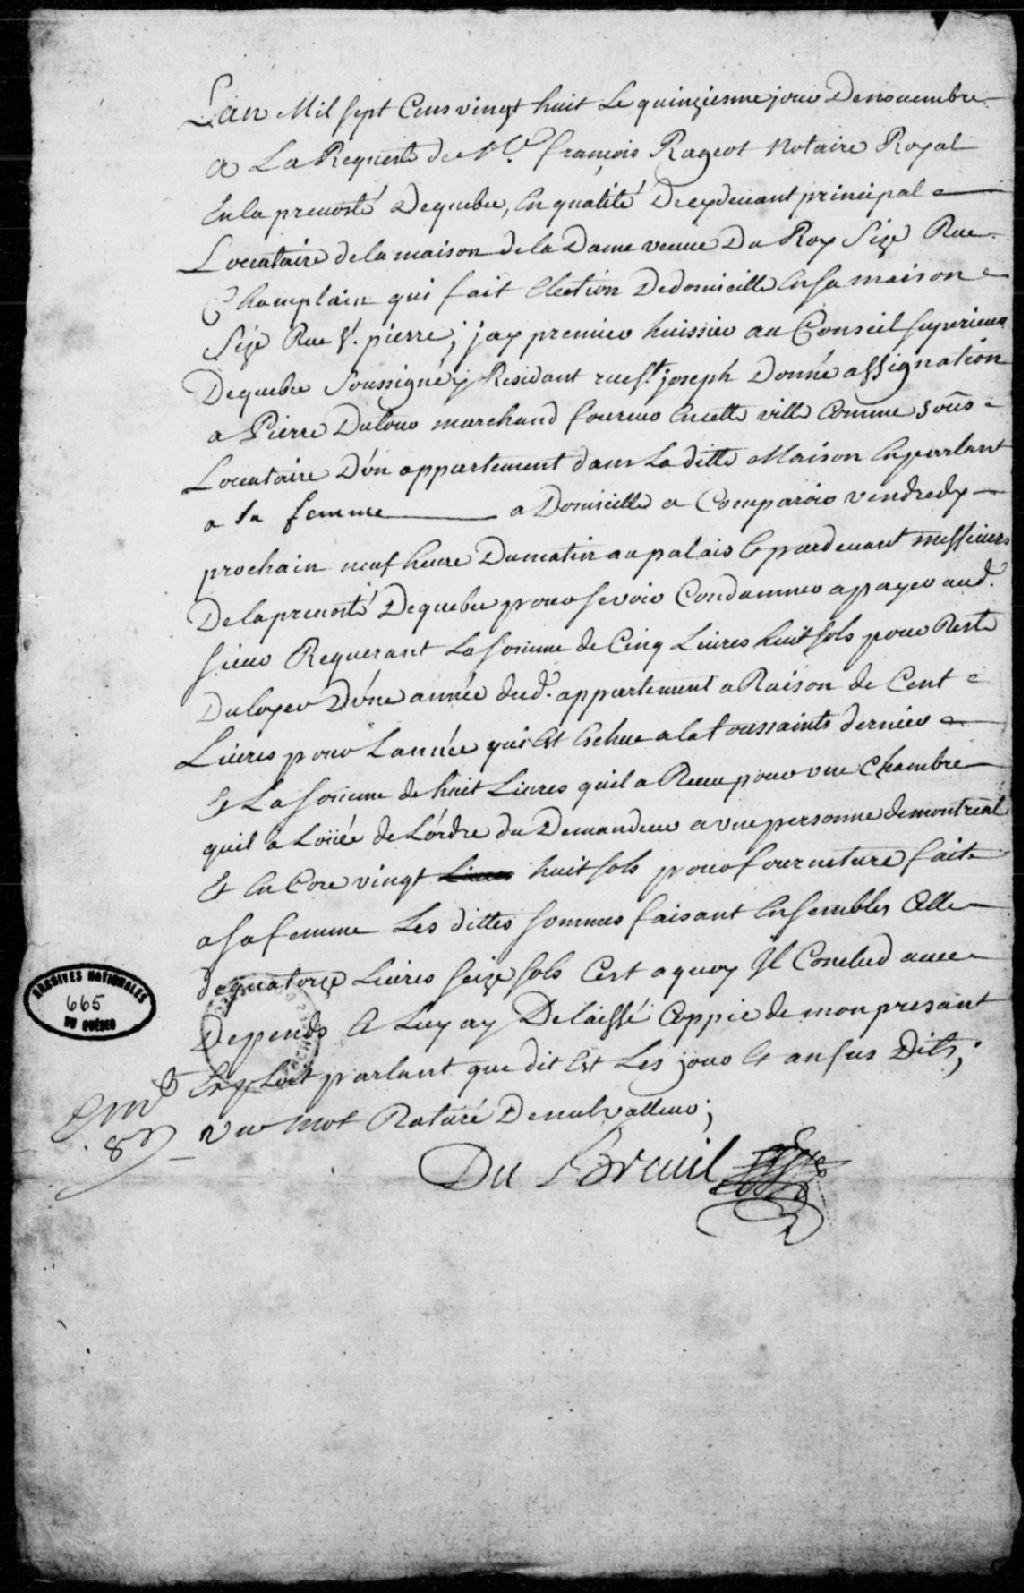 L'an Mil sept Cens vingt huit Le quinziesme jour De novembre
a La Requeste de Me. françois Rageot Notaire Royal
En la prevosté De quebec, En qualité De cy devant principal
Locataire de la maison de la Dame veuve Du Roy Size Rue
Champlain qui fait Election De domicille En sa maison
Size Rue St. pierre, j'ay premier huissier au Conseil superieur
De quebec Soussigné Residant rue St. joseph Donné assignation
a Pierre Dulour marchand foureur En cette ville Comme sous
Locataire D'un appartement dans La ditte Maison En parlant
a sa femme a Domicille a Comparoir vendredy
prochain neuf heure Du matin au palais Et pardevant messieurs
De la prevosté De quebec pour se voir Condamner a payer aud.
sieur Requerant La somme de Cinq Livres huit sols pour Reste
Du loyer D'une année dud. appartement a Raison de Cent
Livres pour L'année qui Est Echue a la toussaints dernier
Et La somme de huit Livres qu'il a Receu pour une Chambre
qu'il a Loüée de L'ordre du Demandeur a une personne de montreal
Et En Core vingt Livres huit sols pour fourniture faite
a sa femme Les dittes sommes faisant Ensembles Celle
de quatorze Livres seize sols C'est a quoy Il Conclud avec
Depends Et Luy ay Delaissé Coppie de mon presant
Exploit parlant que dit Est Les jour Et an sus Dits;
un mot Raturé De nul valleur;
Du Breuil
ARCHIVES NATIONALES
665
DU QUÉBEC